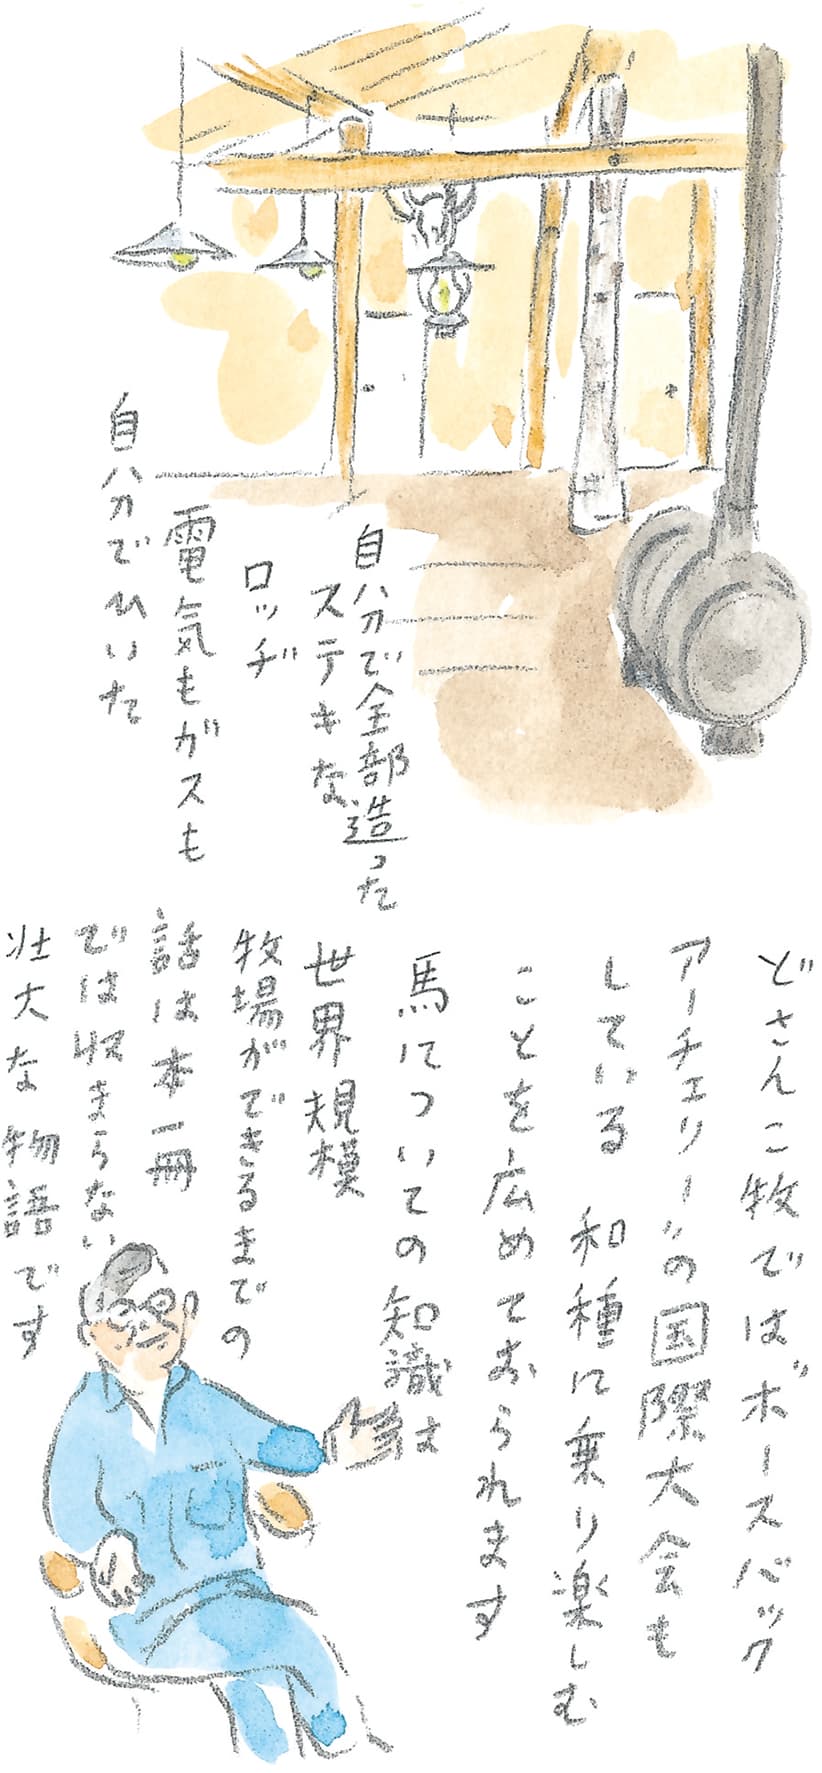 自分で全部造った
ステキな
ロッヂ
電気もガスも
自分でひいた
どさんこ牧では“ホースバック
アーチェリー”の国際大会も
している 和種に乗り楽しむ
ことを広めておられます
馬についての知識は
世界規模
牧場ができるまでの
話は本一冊
では収まらない
壮大な物語です